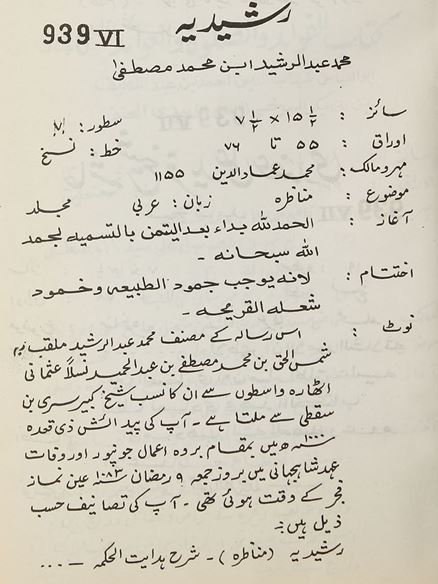 رشیدیہ
939 VI
محمد عبدالرشید ابن محمد مصطفیٰ
سائز : ۱۵ ۱/۲ × ۷ ۱/۲ سطور :
اوراق : ۵۵ تا ۷۶ خط : نسخ
مہر و مالک : محمد عماد الدین ۱۱۵۵
موضوع : مناظرہ زبان : عربی مجلد
آغاز : الحمد للہ بداء بعد الیتمن بالتسمیہ لحمد
اللہ سبحانہ ۔
اختتام : لانہ یوجب جمود الطبیعہ و خمود
شعلہ القریحہ ۔
نوٹ : اس رسالہ کے مصنف محمد عبدالرشید ملقب بہ
شمس الحق بن محمد مصطفےٰ بن عبدالحمید نسلاً عثمانی
اٹھارہ واسطوں سے ان کا نسب شیخ کبیر سری بن
سقطی سے ملتا ہے ۔ آپ کی پیدائش ذی قعدہ
۱۰۰۰ھ میں بمقام بروہ اعمال جونپور اور وفات
عہد شاہجہانی میں بروز جمعہ ۹ رمضان ۱۰۸۳ عین نماز
فجر کے وقت ہوئی تھی ۔ آپ کی تصانیف حسب
ذیل ہیں :۔
رشیدیہ (مناظرہ) ۔ شرح ہدایت الحکمہ ۔ ...